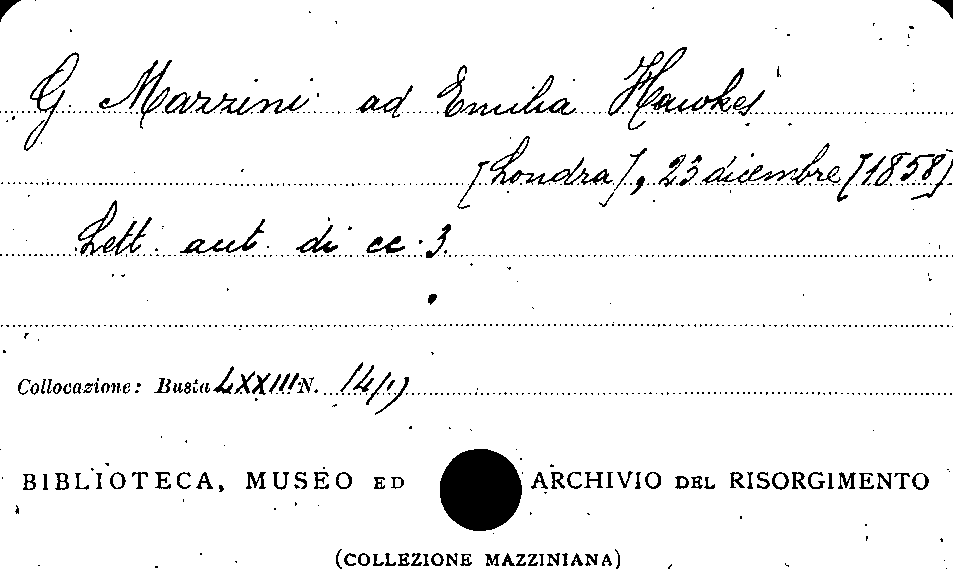 G. Mazzini ad Emilia Hawkes
[Londra], 23 dicembre [1858]
Lett. aut. di cc. 3.
Collocazione: Busta LXXIII N. 14/1)
BIBLIOTECA, MUSEO ED ARCHIVIO DEL RISORGIMENTO
(COLLEZIONE MAZZINIANA)